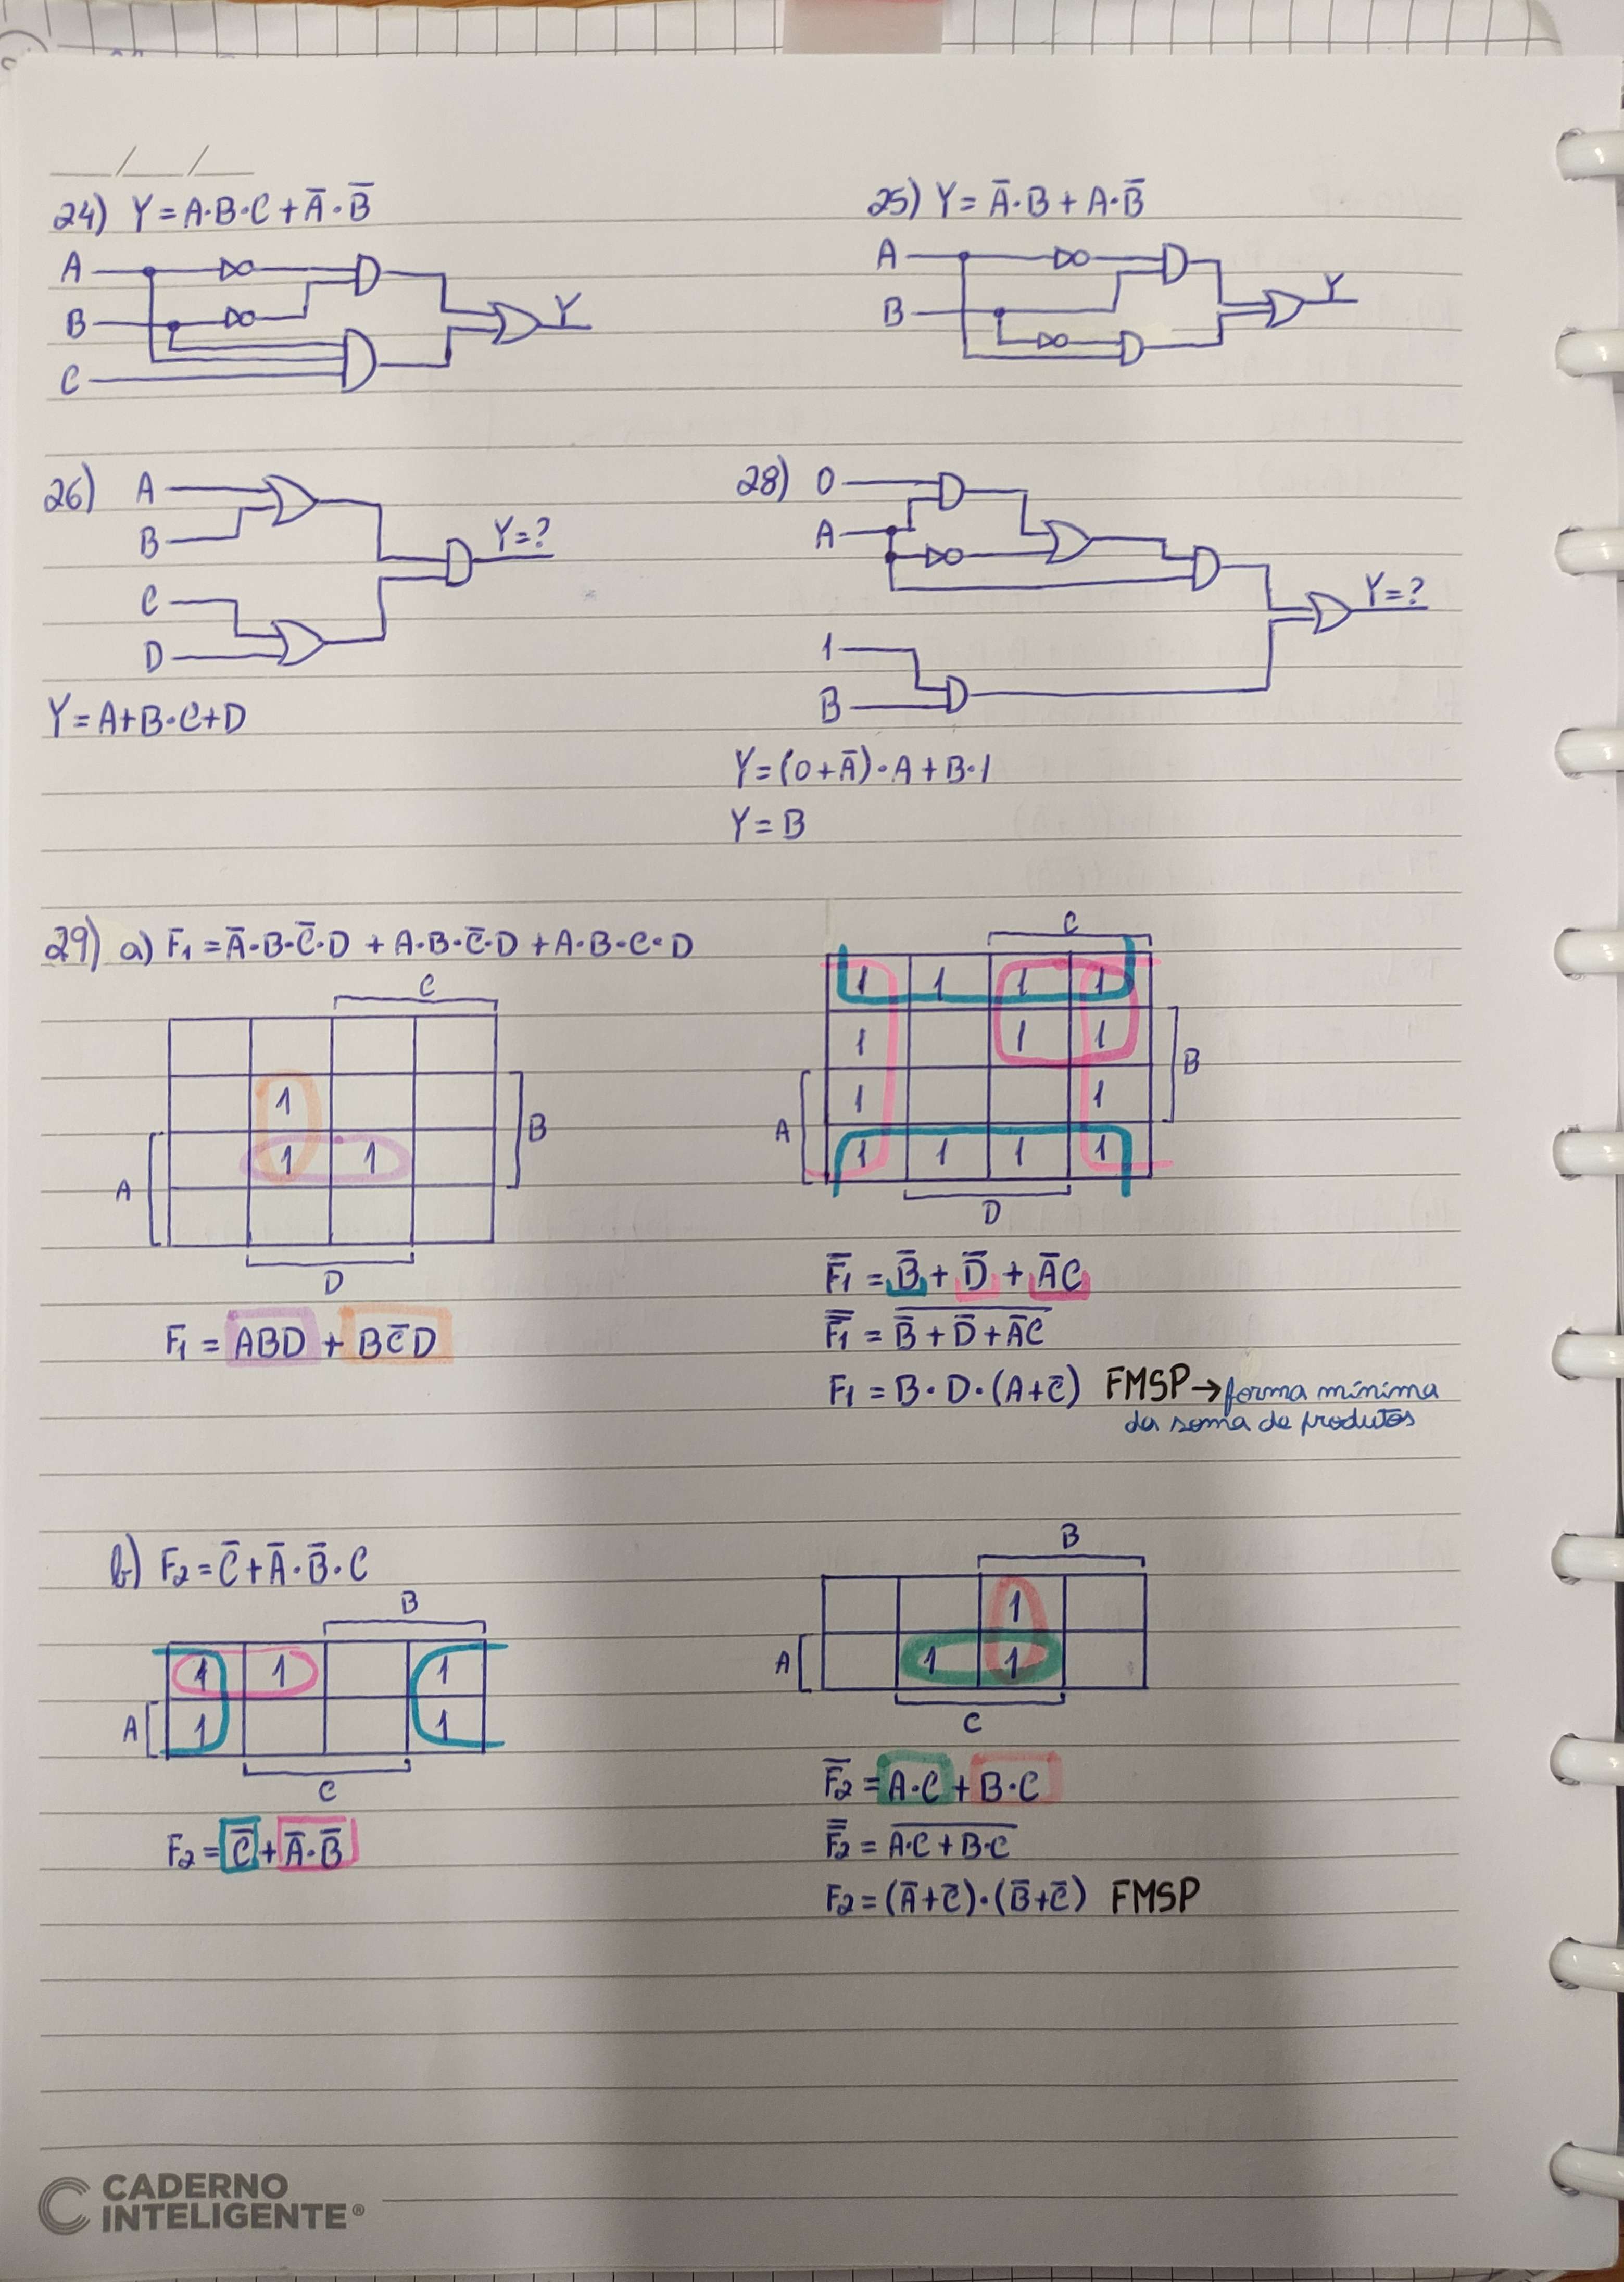 __/__/__
24) Y = A·B·C + A̅·B̅
A
B
C
Y
25) Y = A̅·B + A·B̅
A
B
Y
26) A
B
C
D
Y=?
Y = A+B·C+D
28) 0
A
1
B
Y=?
Y = (0+A̅)·A+B·1
Y = B
29) a) F₁ = A̅·B·C̅·D + A·B·C̅·D + A·B·C·D
C
1
1 1
B
A
D
F₁ = ABD + BC̅D
C
1 1 1 1
1 1 1
B
1 1
A
1 1 1 1
D
F̅₁ = B̅ + D̅ + A̅C
F̿₁ = B̅̅ ̅+̅ ̅D̅̅ ̅+̅ ̅A̅̅C̅
F₁ = B·D·(A+C̅) FMSP → forma mínima
da soma de produtos
b) F₂ = C̅ + A̅·B̅·C
B
1 1 1
A 1 1
C
F₂ = C̅ + A̅·B̅
B
1
A 1 1
C
F̅₂ = A·C + B·C
F̿₂ = A̅·̅C̅ ̅+̅ ̅B̅·̅C̅
F₂ = (A̅+C̅)·(B̅+C̅) FMSP
CADERNO
INTELIGENTE®